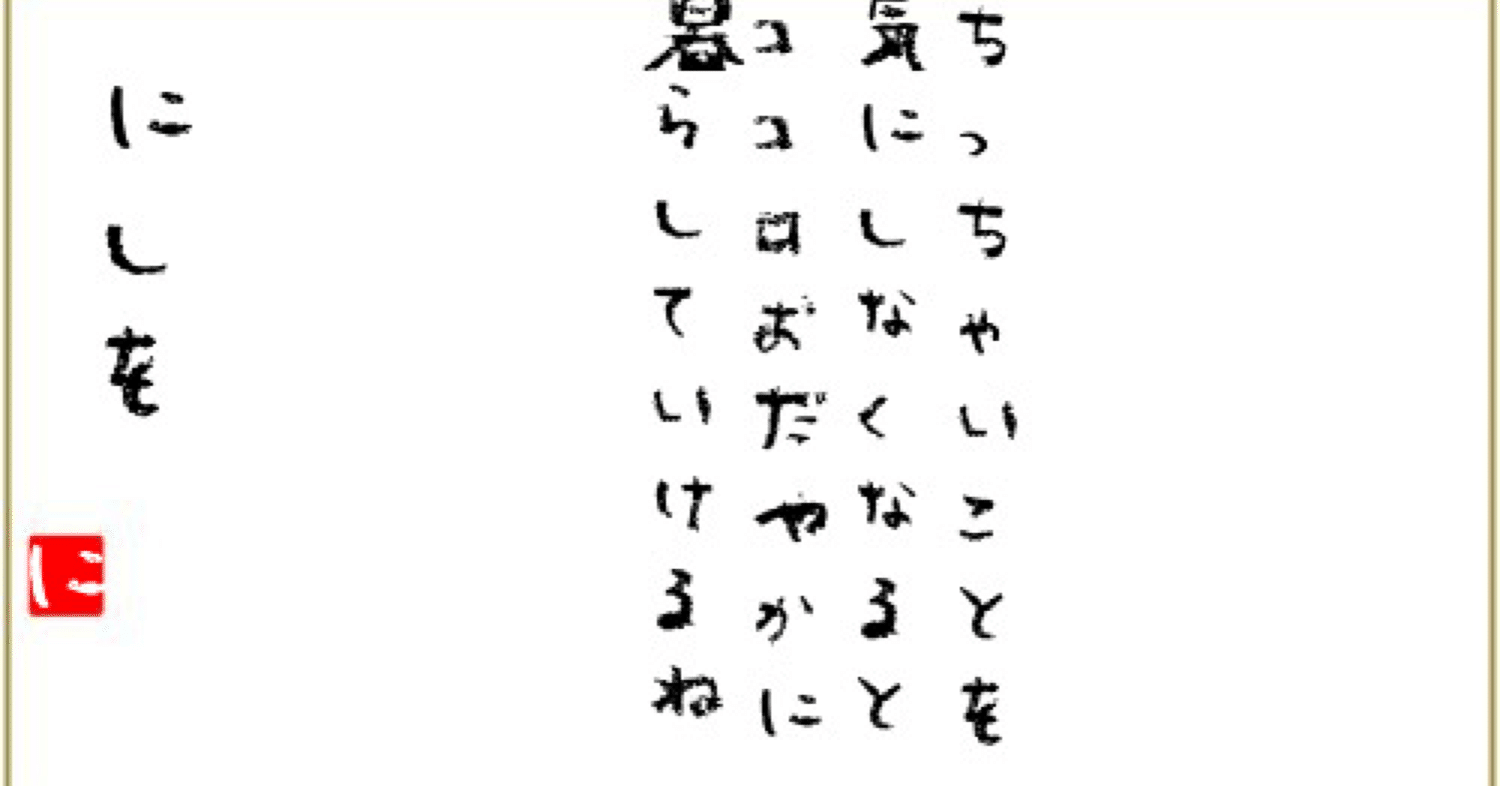 ちっちゃいことを
気にしなくなると
ココロおだやかに
暮らしていけるね
にしを
に